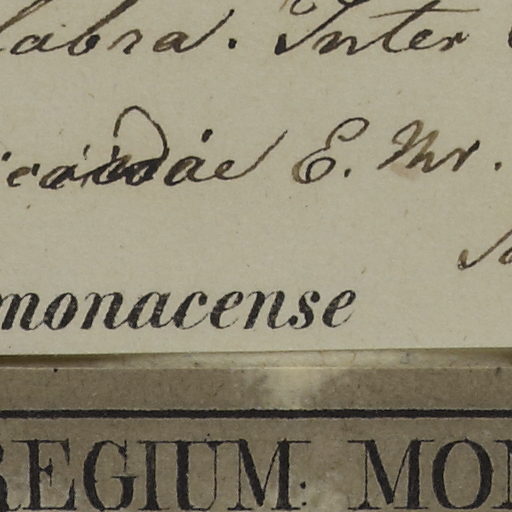 labra. Inter
E. Mr.
monacense
REGIUM MON